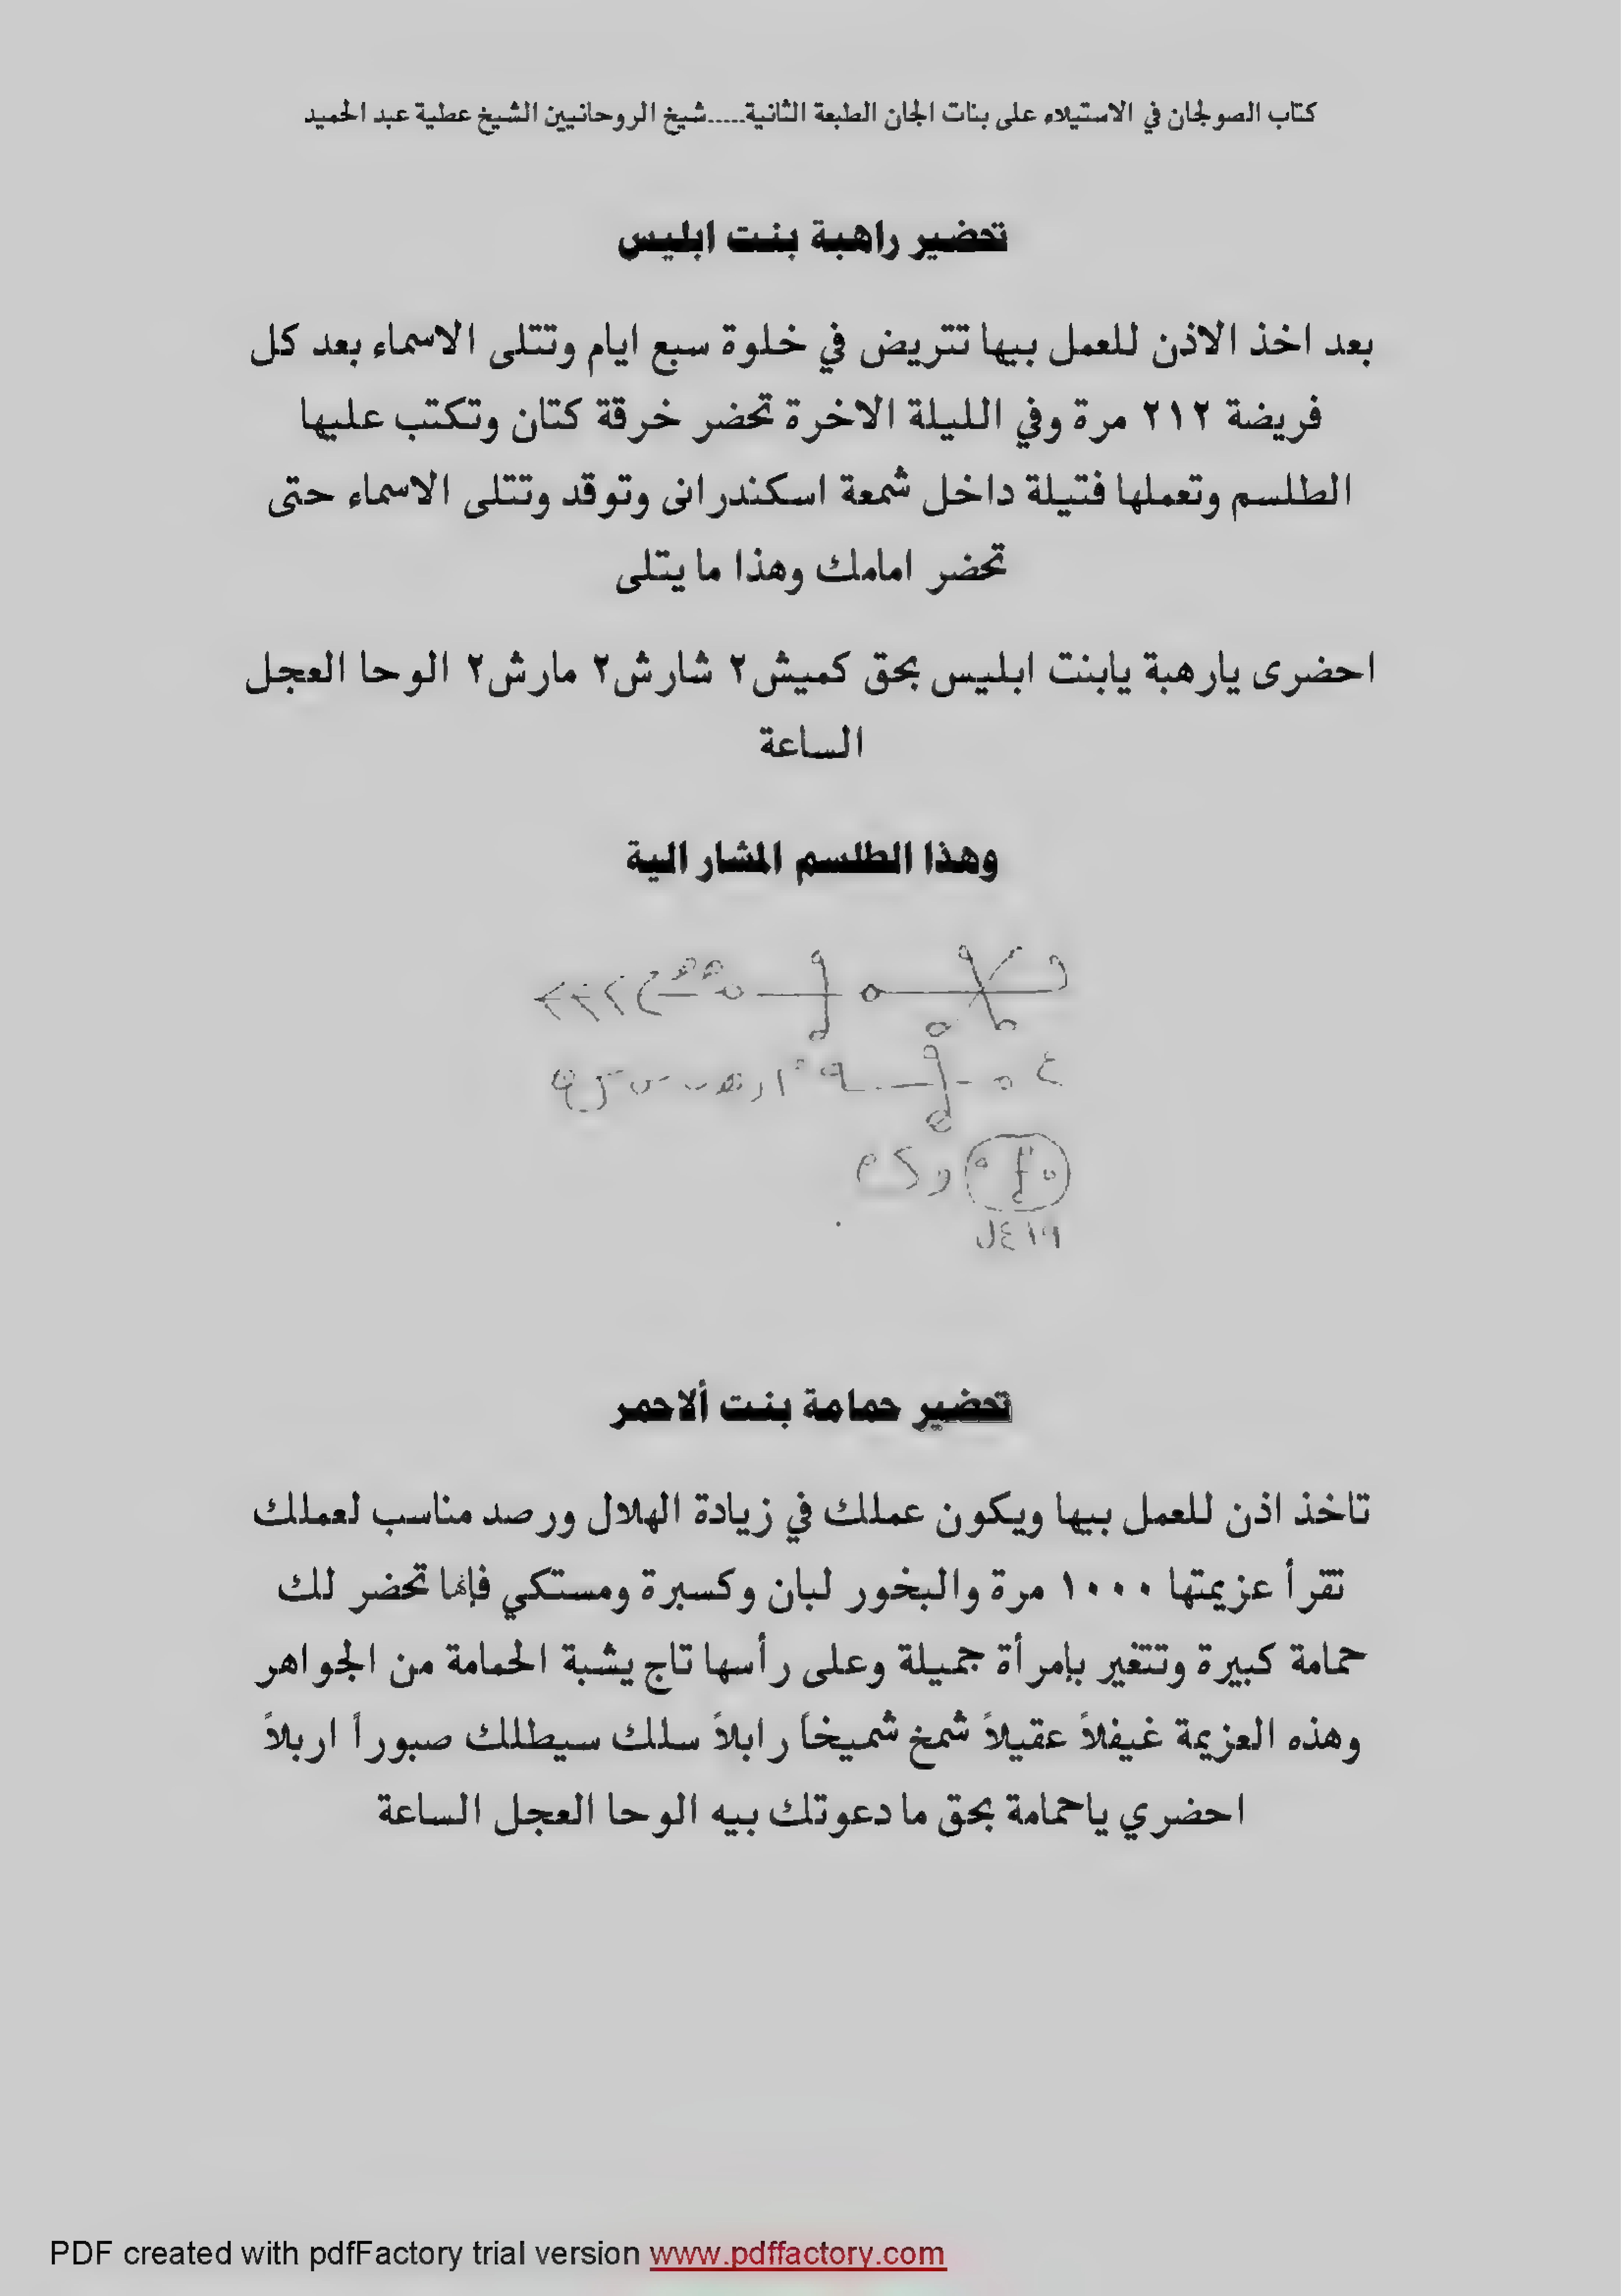 كتاب الصولجان في الاستيلاء على بنات الجان الطبعة الثانية.....شيخ الروحانيين الشيخ عطية عبد الحميد
تحضير راهبة بنت ابليس
بعد اخذ الاذن للعمل بيها تتريض في خلوة سبع ايام وتتلى الاسماء بعد كل
فريضة ٢١٢ مرة وفي الليلة الاخرة تحضر خرقة كتان وتكتب عليها
الطلسم وتعملها فتيلة داخل شمعة اسكندرانى وتوقد وتتلى الاسماء حتى
تحضر امامك وهذا ما يتلى
احضرى يارهبة يابنت ابليس بحق كميش٢ شارش٢ مارش٢ الوحا العجل
الساعة
وهذا الطلسم المشار الية
تحضير حمامة بنت ألاحمر
تاخذ اذن للعمل بيها ويكون عملك في زيادة الهلال ورصد مناسب لعملك
تقرأ عزيمتها ١٠٠٠ مرة والبخور لبان وكسبرة ومستكي فإنها تحضر لك
حمامة كبيرة وتتغير بإمرأة جميلة وعلى رأسها تاج يشبة الحمامة من الجواهر
وهذه العزيمة غيفلاً عقيلاً شمخ شميخاً رابلاً سلك سيطلك صبوراً اربلاً
احضري ياحمامة بحق ما دعوتك بيه الوحا العجل الساعة
PDF created with pdfFactory trial version www.pdffactory.com